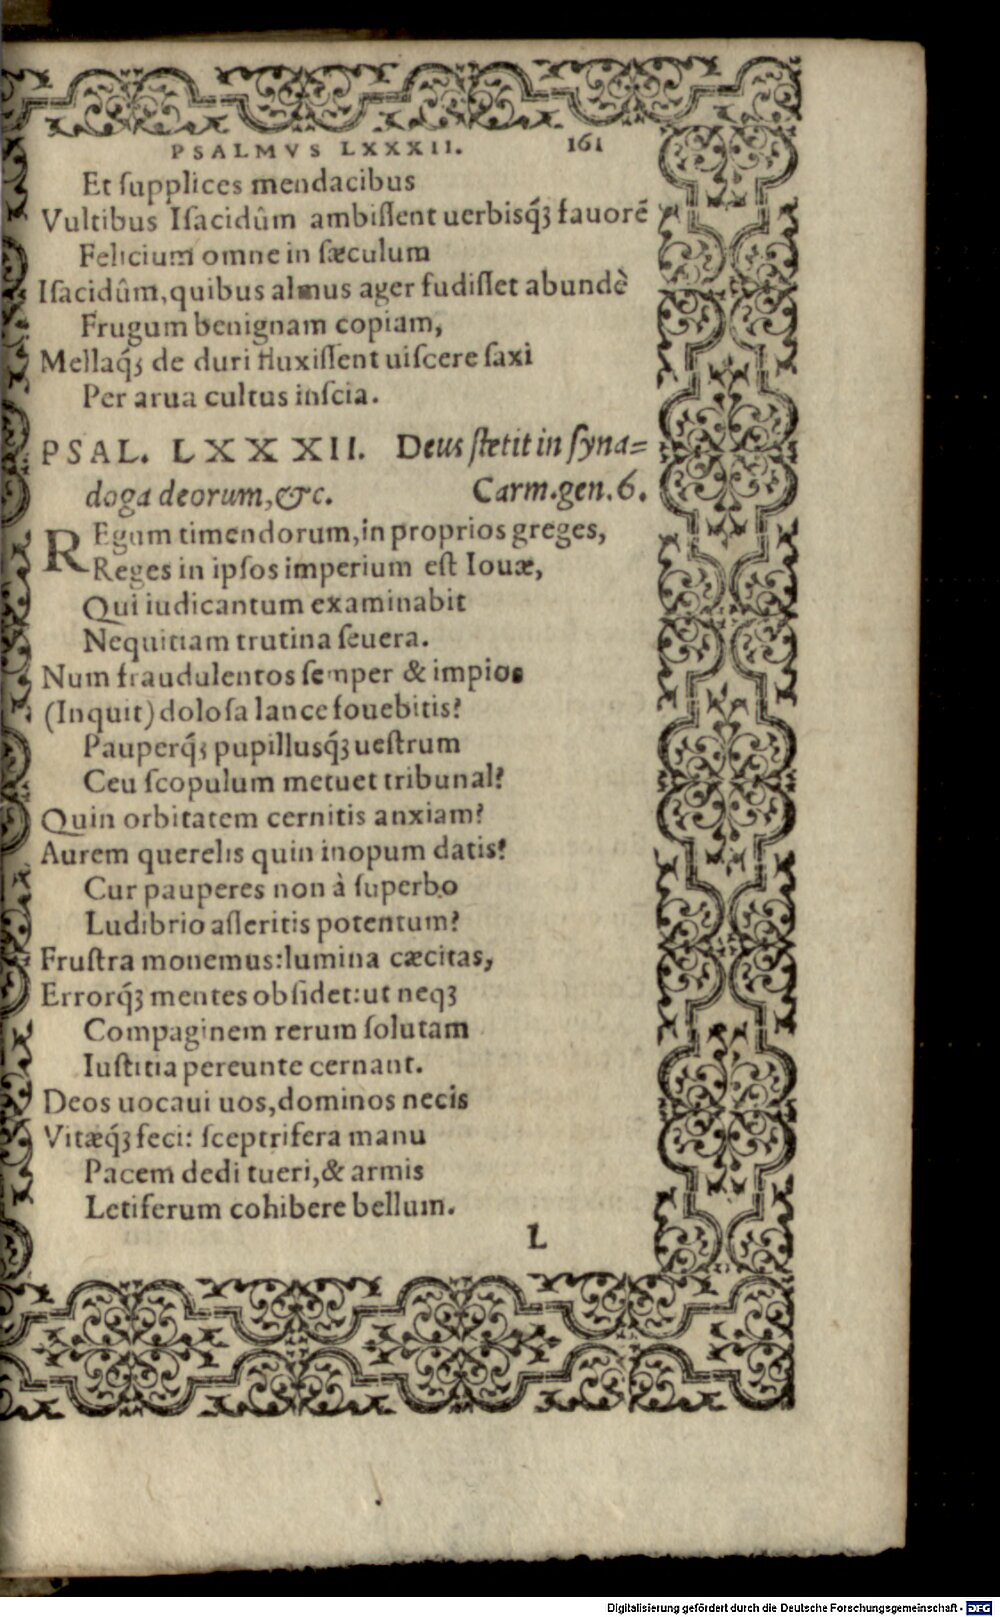 PSALMVS LXXXII. 161
Et ſupplices mendacibus
Vultibus Iſacidûm ambiſſent uerbisq́ꝫ fauorẽ
Felicium omne in ſæculum
Iſacidûm, quibus almus ager fudiſſet abundè
Frugum benignam copiam,
Mellaq́ꝫ de duri fluxiſſent uiſcere ſaxi
Per arua cultus inſcia.
PSAL. LXXXII. Deus ſtetit in ſyna=
doga deorum, &c. Carm. gen. 6.
REgum timendorum, in proprios greges,
Reges in ipſos imperium eſt Iouæ,
Qui iudicantum examinabit
Nequitiam trutina ſeuera.
Num fraudulentos ſemper & impios
(Inquit) doloſa lance fouebitis?
Pauperq́ꝫ pupillusq́ꝫ ueſtrum
Ceu ſcopulum metuet tribunal?
Quin orbitatem cernitis anxiam?
Aurem querelis quin inopum datis?
Cur pauperes non à ſuperbo
Ludibrio aſſeritis potentum?
Fruſtra monemus: lumina cæcitas,
Errorq́ꝫ mentes obſidet: ut neqꝫ
Compaginem rerum ſolutam
Iuſtitia pereunte cernant.
Deos uocaui uos, dominos necis
Vitæq́ꝫ feci: ſceptrifera manu
Pacem dedi tueri, & armis
Letiferum cohibere bellum.
L
Digitalisierung gefördert durch die Deutsche Forschungsgemeinschaft - DFG